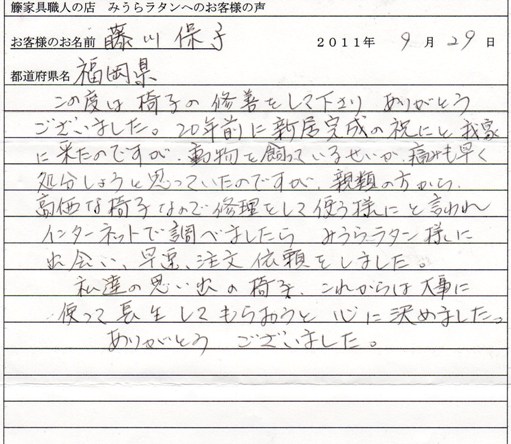 籐家具職人の店 みうらラタンへのお客様の声
お客様のお名前 藤川保子 2011年 9月29日
都道府県名 福岡県
この度は椅子の修善をして下さり ありがとう
ございました。20年前に新居完成の祝にと我家
に来たのですが、動物を飼っているせいか、痛みも早く
処分しようと思っていたのですが、親類の方から、
高価な椅子なので修理をして使う様にと言われ
インターネットで調べましたら みうらラタン様に
出会い、早速、注文依頼をしました。
私達の思い出の椅子、これからは大事に
使って長生してもらおうと心に決めましたっ
ありがとう ございました。